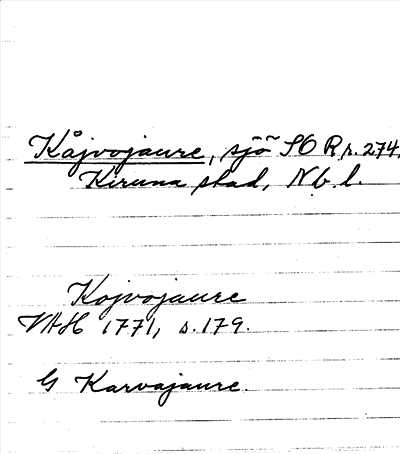 Kåjvojaure, sjö SO R, s. 274,
Kiruna stad, Nb. l.
Kojvojaure
VAH 1771, s. 179.
G Karvajaure.